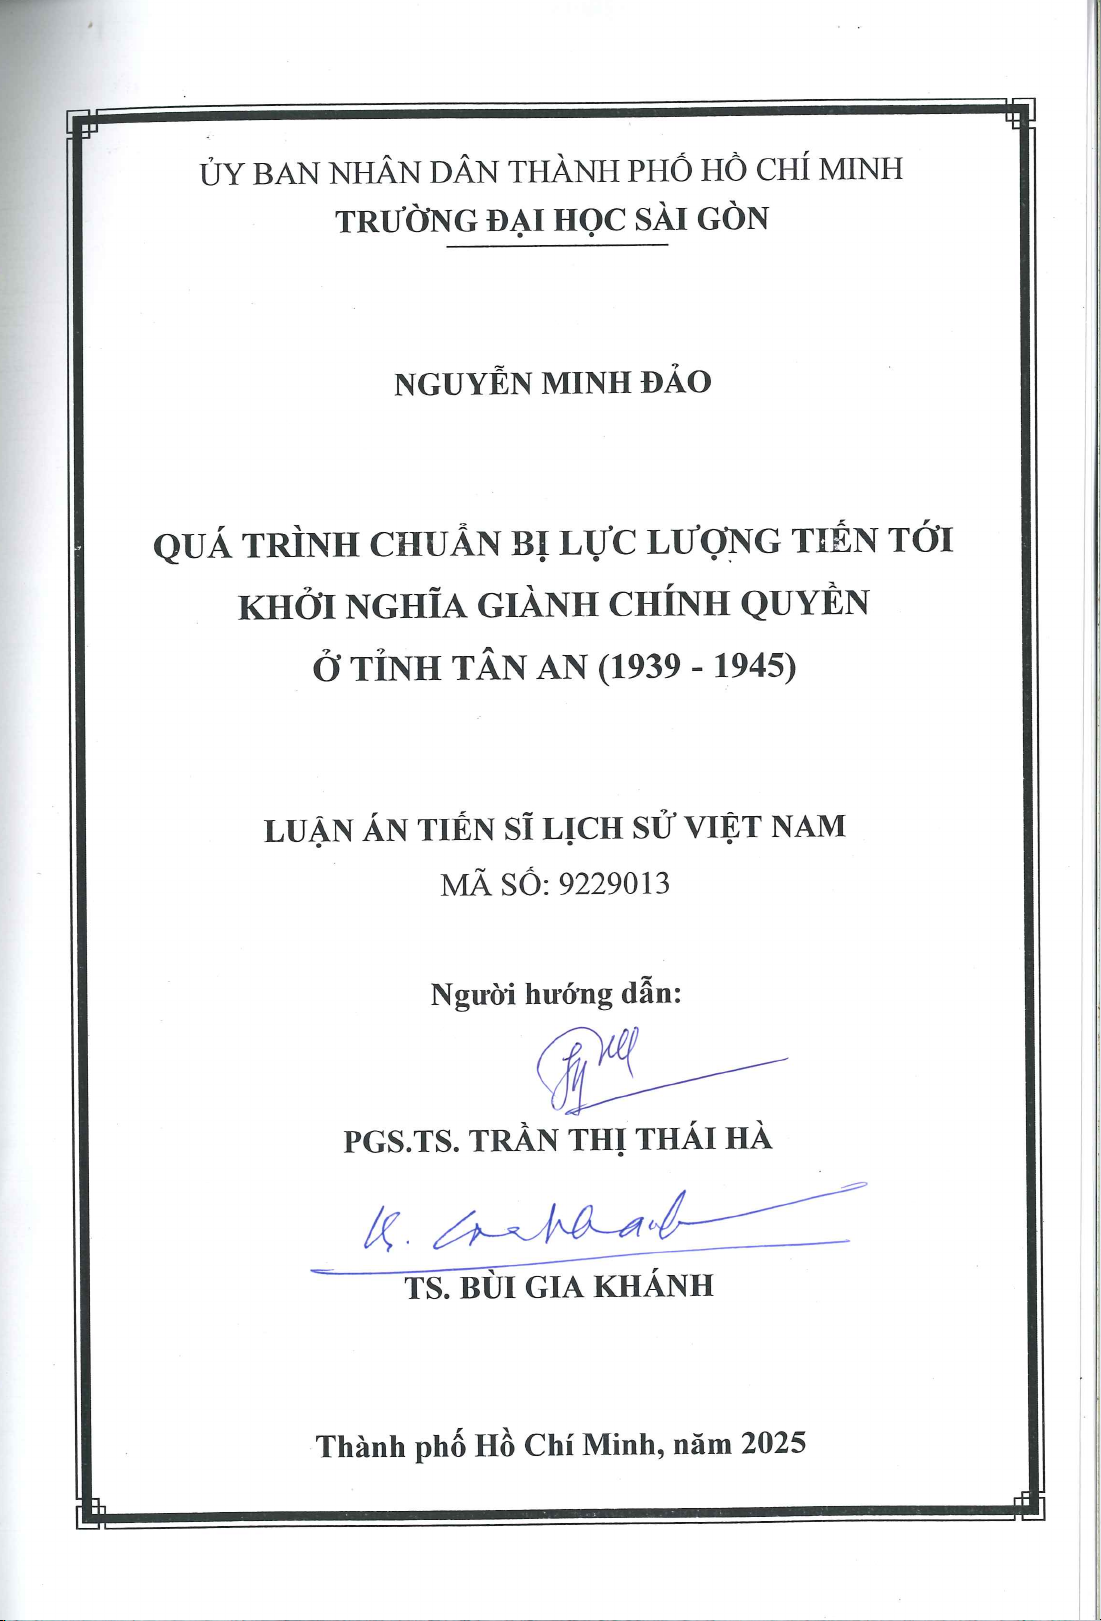 ỦY BAN NHÂN DÂN THÀNH PHỐ HỒ CHÍ MINH
TRƯỜNG ĐẠI HỌC SÀI GÒN
NGUYỄN MINH ĐẢO
QUÁ TRÌNH CHUẨN BỊ LỰC LƯỢNG TIẾN TỚI
KHỞI NGHĨA GIÀNH CHÍNH QUYỀN
Ở TỈNH TÂN AN (1939 - 1945)
LUẬN ÁN TIẾN SĨ LỊCH SỬ VIỆT NAM
MÃ SỐ: 9229013
Người hướng dẫn:
PGS.TS. TRẦN THỊ THÁI HÀ
TS. BÙI GIA KHÁNH
Thành phố Hồ Chí Minh, năm 2025